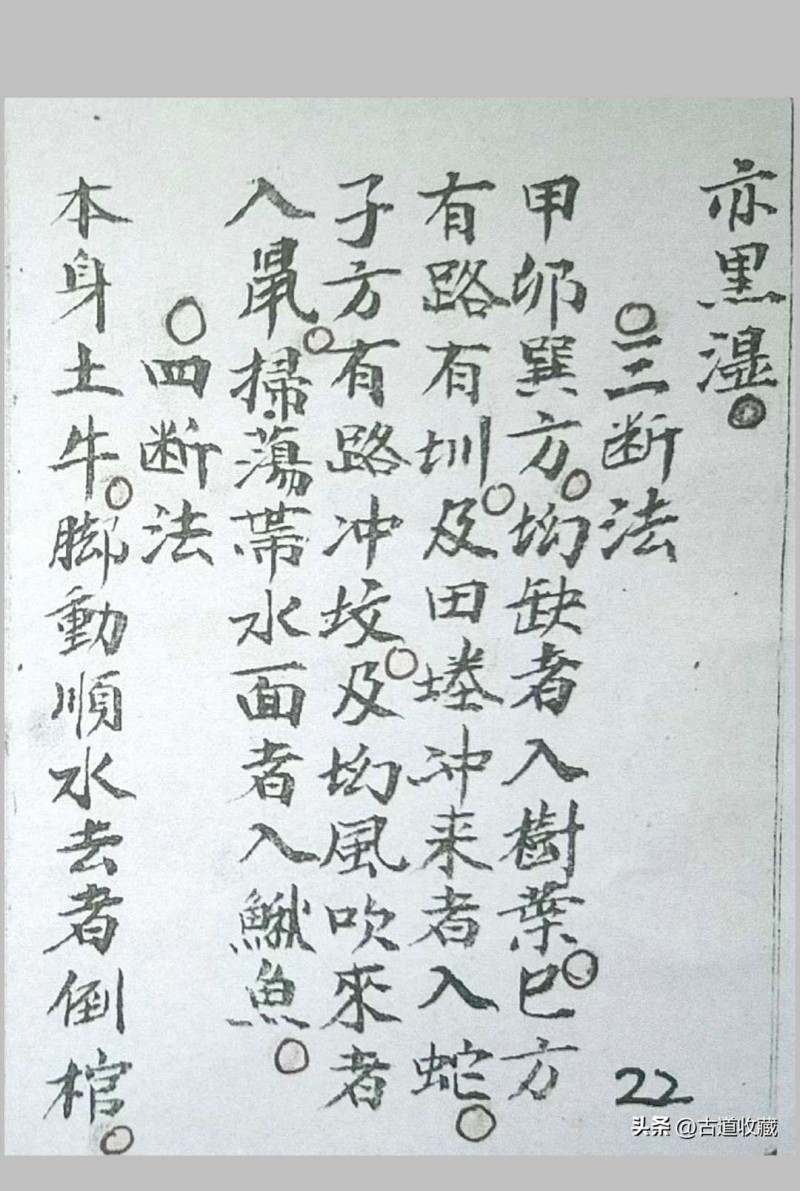 亦黒湿。
○三断法
甲卯巽方。坳缺者入樹葉。巳方
有路有圳。及田塍冲来者入蛇。
子方有路冲坟。及坳風吹來者
入鼠。掃蕩帯水面者入鰍魚。
○四断法
本身土牛。脚動順水去者倒棺。
22
头条 @古道收藏